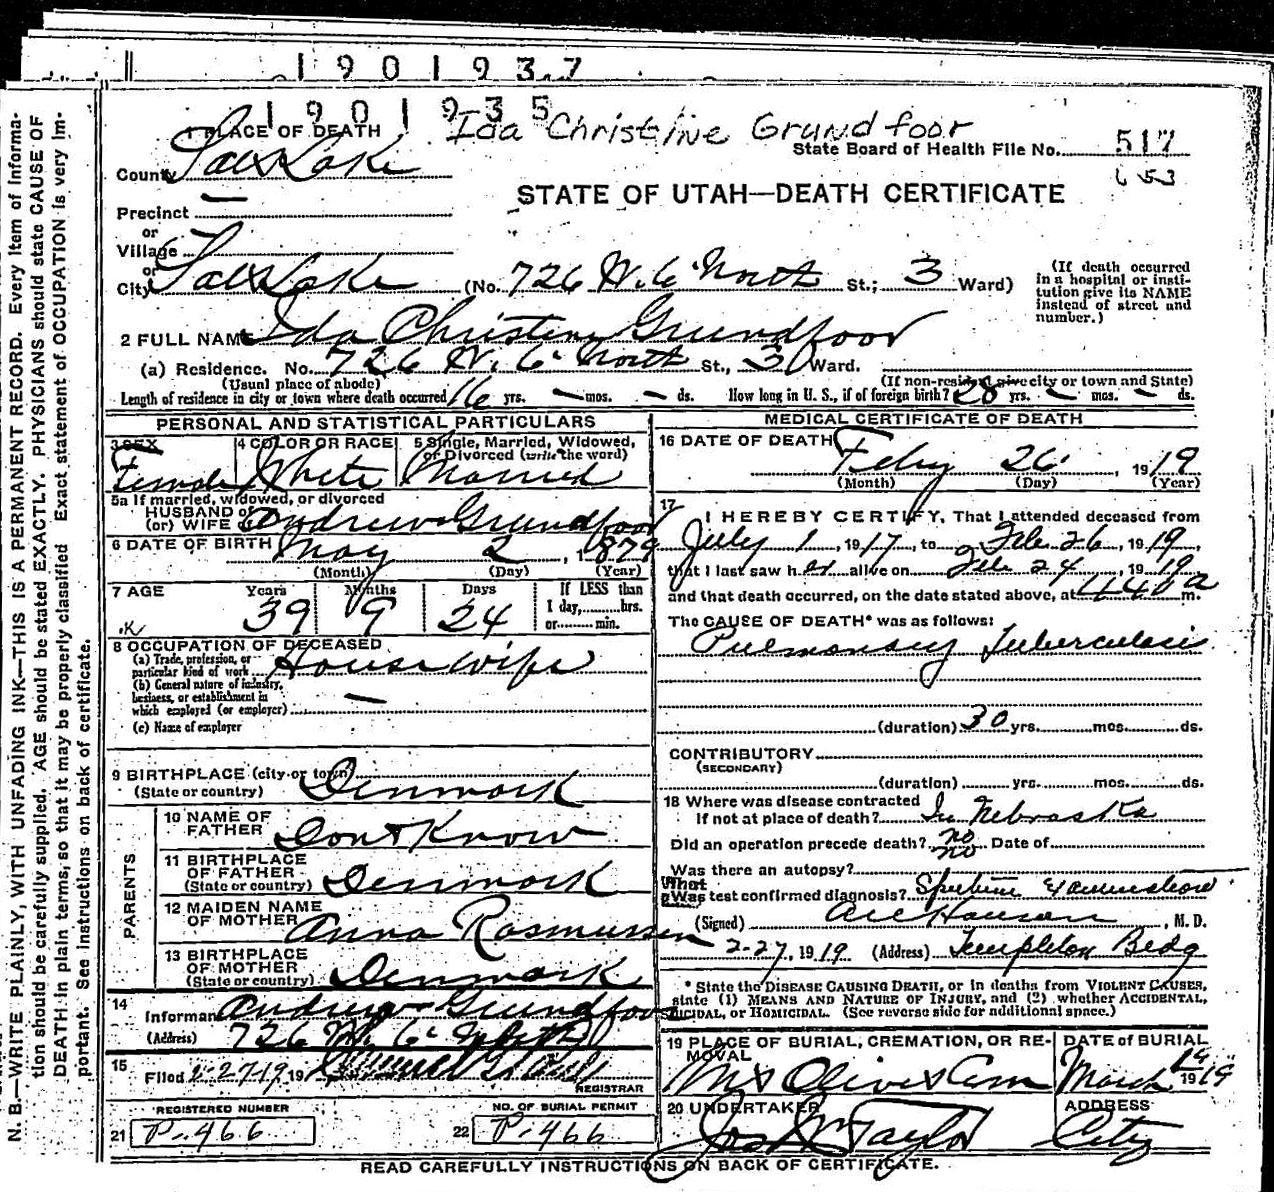 1901937
1901935
Ida Christine Grundfoor
1 PLACE OF DEATH
State Board of Health File No. 517
653
County Salt Lake
STATE OF UTAH—DEATH CERTIFICATE
Precinct —
or
Village
or
City Salt Lake (No. 726 W. 6 North St.; 3 Ward)
(If death occurred
in a hospital or insti-
tution give its NAME
instead of street and
number.)
2 FULL NAME Ida Christine Grundfoor
(a) Residence. No. 726 W. 6 North St., 3 Ward.
(Usual place of abode) (If non-resident give city or town and State)
Length of residence in city or town where death occurred 16 yrs. — mos. — ds. How long in U. S., if of foreign birth? 28 yrs. — mos. — ds.
PERSONAL AND STATISTICAL PARTICULARS
3 SEX
Female
4 COLOR OR RACE
White
5 Single, Married, Widowed,
or Divorced (write the word)
Married
5a If married, widowed, or divorced
HUSBAND of
(or) WIFE of Andrew Grundfoor
6 DATE OF BIRTH May 2, 1879
(Month) (Day) (Year)
7 AGE Years Months Days If LESS than
39 9 24 1 day,........hrs.
or.........min.
8 OCCUPATION OF DECEASED
(a) Trade, profession, or
particular kind of work House Wife
(b) General nature of industry,
business, or establishment in
which employed (or employer) —
(c) Name of employer
9 BIRTHPLACE (city or town)
(State or country) Denmark
PARENTS
10 NAME OF
FATHER Dont Know
11 BIRTHPLACE
OF FATHER
(State or country) Denmark
12 MAIDEN NAME
OF MOTHER Anna Rasmussen
13 BIRTHPLACE
OF MOTHER
(State or country) Denmark
14
Informant Andrew Grundfoor
(Address) 726 W. 6 North
15
Filed 2-27-19, 19
REGISTRAR
REGISTERED NUMBER
21 P-466
NO. OF BURIAL PERMIT
22 P-466
MEDICAL CERTIFICATE OF DEATH
16 DATE OF DEATH
Feby 26, 1919
(Month) (Day) (Year)
17
I HEREBY CERTIFY, That I attended deceased from
July 1, 1917, to Feb 26, 1919
that I last saw her alive on Feb 24, 1919
and that death occurred, on the date stated above, at 440 a m.
The CAUSE OF DEATH* was as follows:
Pulmonary Tuberculosis
(duration) 30 yrs. mos. ds.
CONTRIBUTORY
(SECONDARY)
(duration) yrs. mos. ds.
18 Where was disease contracted
If not at place of death? In Nebraska
Did an operation precede death? no Date of
Was there an autopsy? no
What test confirmed diagnosis? Sputum Examination
(Signed) Hanson, M. D.
2-27, 1919 (Address) Templeton Bldg
* State the DISEASE CAUSING DEATH, or in deaths from VIOLENT CAUSES,
state (1) MEANS AND NATURE OF INJURY, and (2) whether ACCIDENTAL,
SUICIDAL, or HOMICIDAL. (See reverse side for additional space.)
19 PLACE OF BURIAL, CREMATION, OR RE-
MOVAL
Mt Olivet Cem
DATE OF BURIAL
March 1st 1919
20 UNDERTAKER
Jos Wm Taylor
ADDRESS
City
READ CAREFULLY INSTRUCTIONS ON BACK OF CERTIFICATE.
N. B.—WRITE PLAINLY, WITH UNFADING INK—THIS IS A PERMANENT RECORD. Every item of informa-
tion should be carefully supplied. AGE should be stated EXACTLY. PHYSICIANS should state CAUSE OF
DEATH in plain terms, so that it may be properly classified. Exact statement of OCCUPATION is very im-
portant. See instructions on back of certificate.